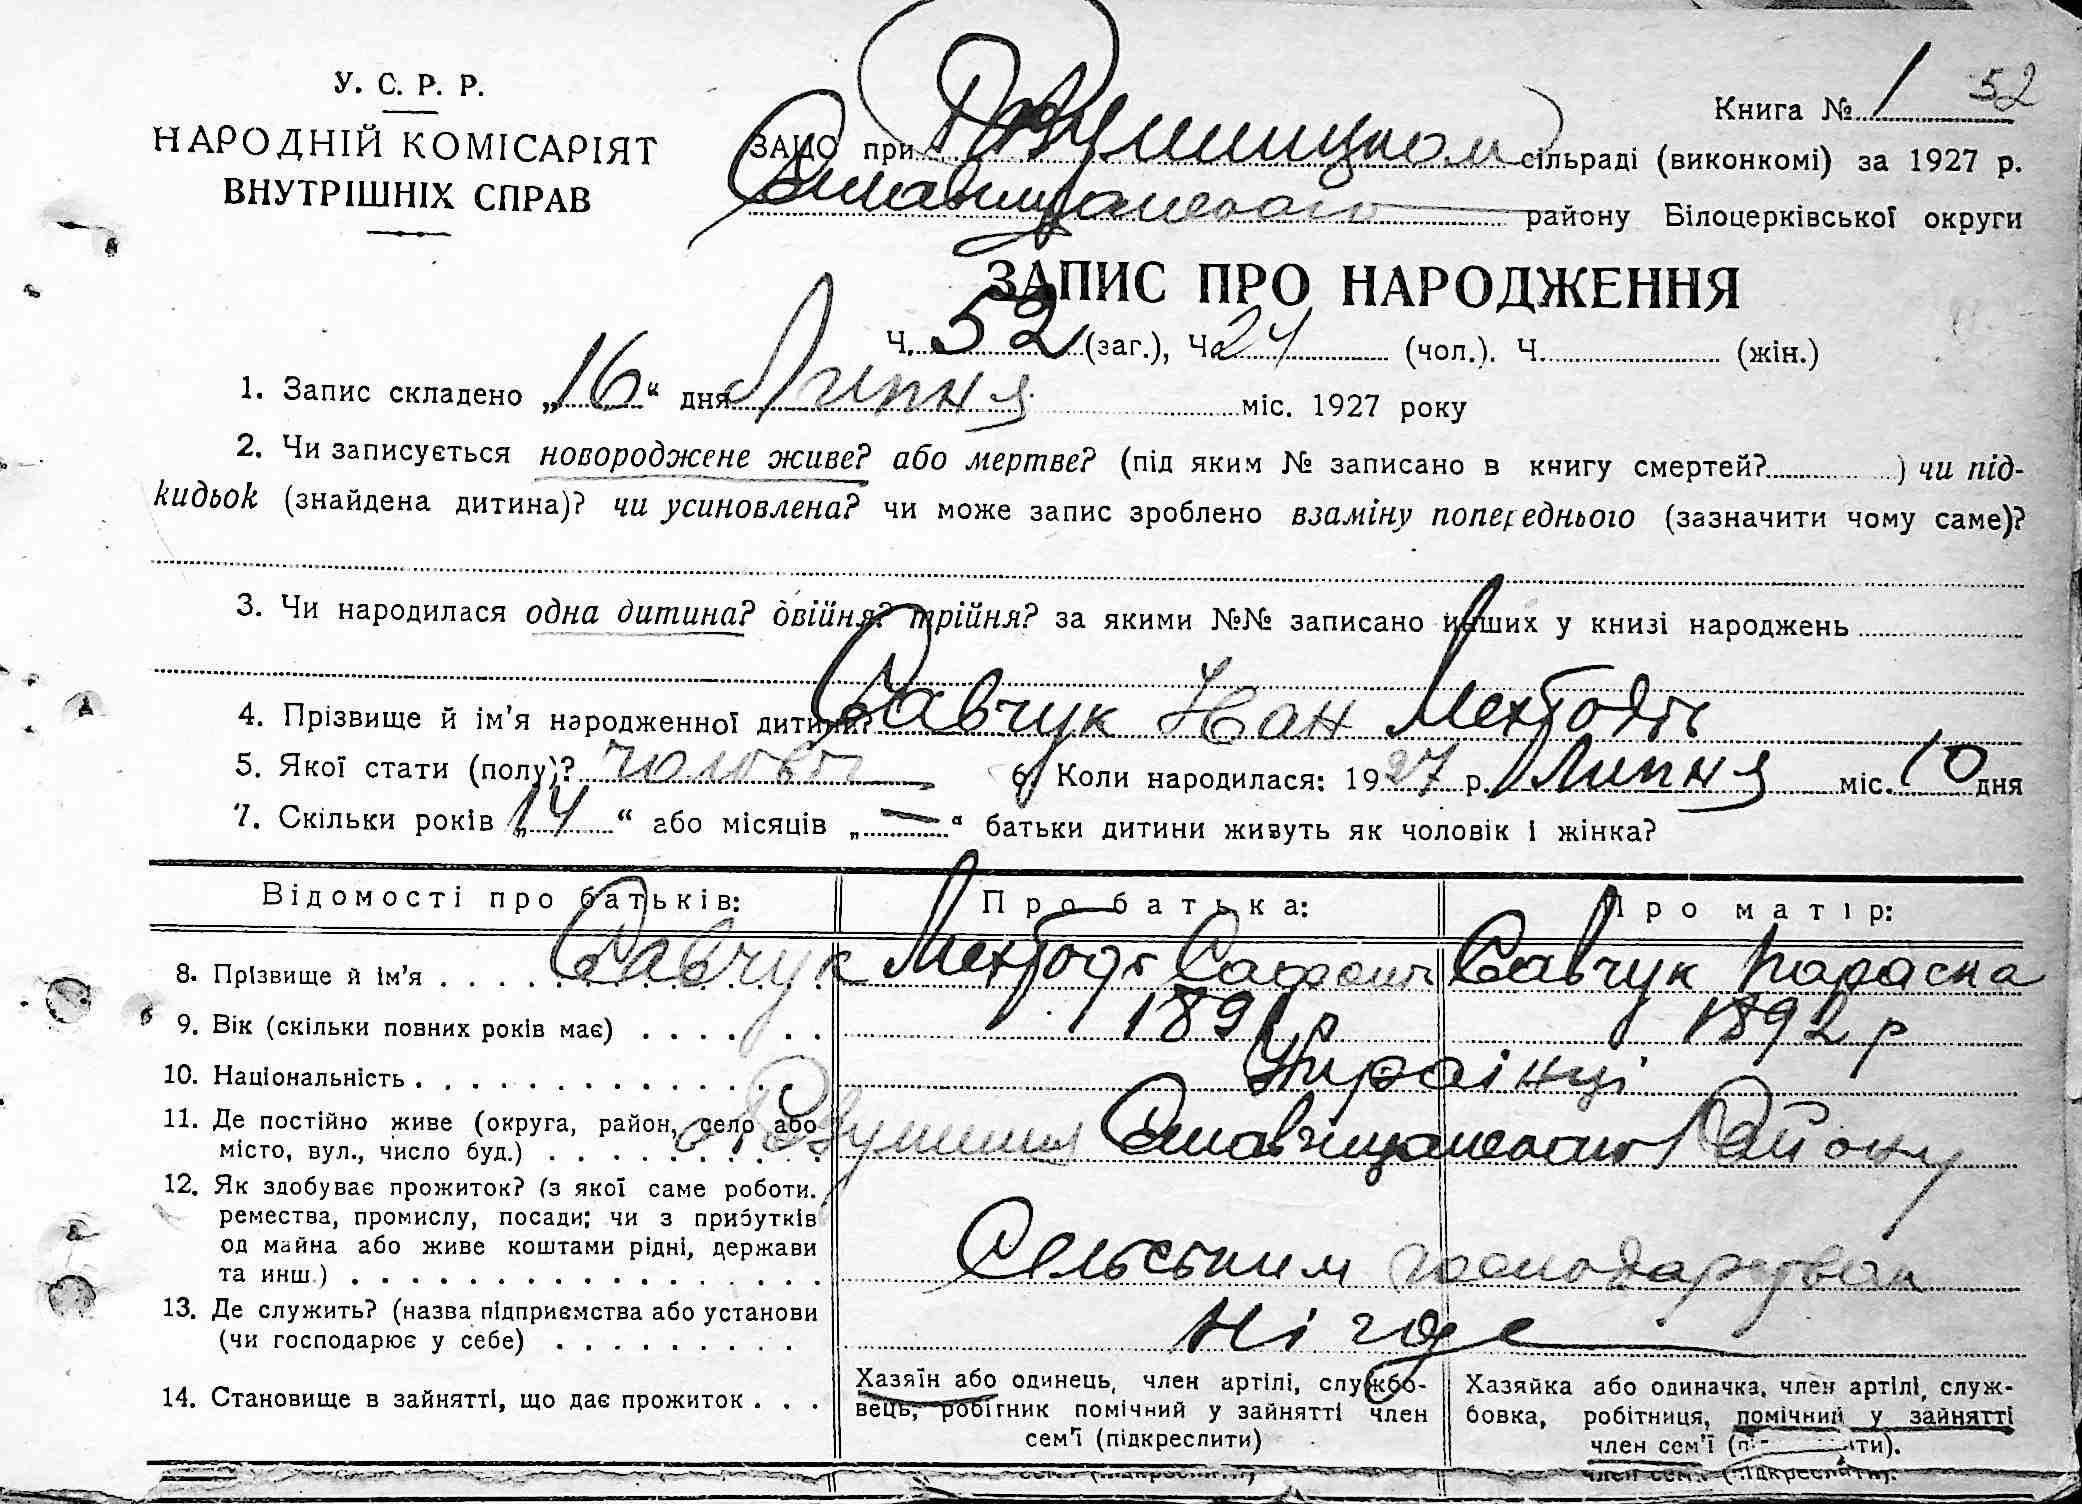 У. С. Р. Р.
НАРОДНІЙ КОМІСАРІЯТ
ВНУТРІШНІХ СПРАВ
Книга № 1 52
ЗАЦС при сільраді (виконкомі) за 1927 р.
району Білоцерківської округи
ЗАПИС ПРО НАРОДЖЕННЯ
Ч. 52 (заг.), Ч. 24 (чол.). Ч. (жін.)
1. Запис складено „16“ дня Липня міс. 1927 року
2. Чи записується новороджене живе? або мертве? (під яким № записано в книгу смертей? ) чи під-
кидьок (знайдена дитина)? чи усиновлена? чи може запис зроблено взаміну попереднього (зазначити чому саме)?
3. Чи народилася одна дитина? двійня? трійня? за якими №№ записано инших у книзі народжень
4. Прізвище й ім'я народженної дитини? Савчук
5. Якої стати (полу)? 6. Коли народилася: 1927 р. Липня міс. 10 дня
7. Скільки років „14“ або місяців „—“ батьки дитини живуть як чоловік і жінка?
Відомості про батьків: Про батька: Про матір:
8. Прізвище й ім'я Савчук Савчук Параска
9. Вік (скільки повних років має) 1891 р 1892 р
10. Національність Українці
11. Де постійно живе (округа, район, село або
місто, вул., число буд.) Району
12. Як здобуває прожиток? (з якої саме роботи.
ремества, промислу, посади; чи з прибутків
од майна або живе коштами рідні, держави
та инш.) Сельським
13. Де служить? (назва підприємства або установи
(чи господарює у себе) нігде
14. Становище в зайнятті, що дає прожиток
Хазяїн або одинець, член артілі, службо-
вець, робітник помічний у зайнятті член
сем'ї (підкреслити)
Хазяйка або одиначка, член артілі, служ-
бовка, робітниця, помічний у зайнятті
член сем'ї